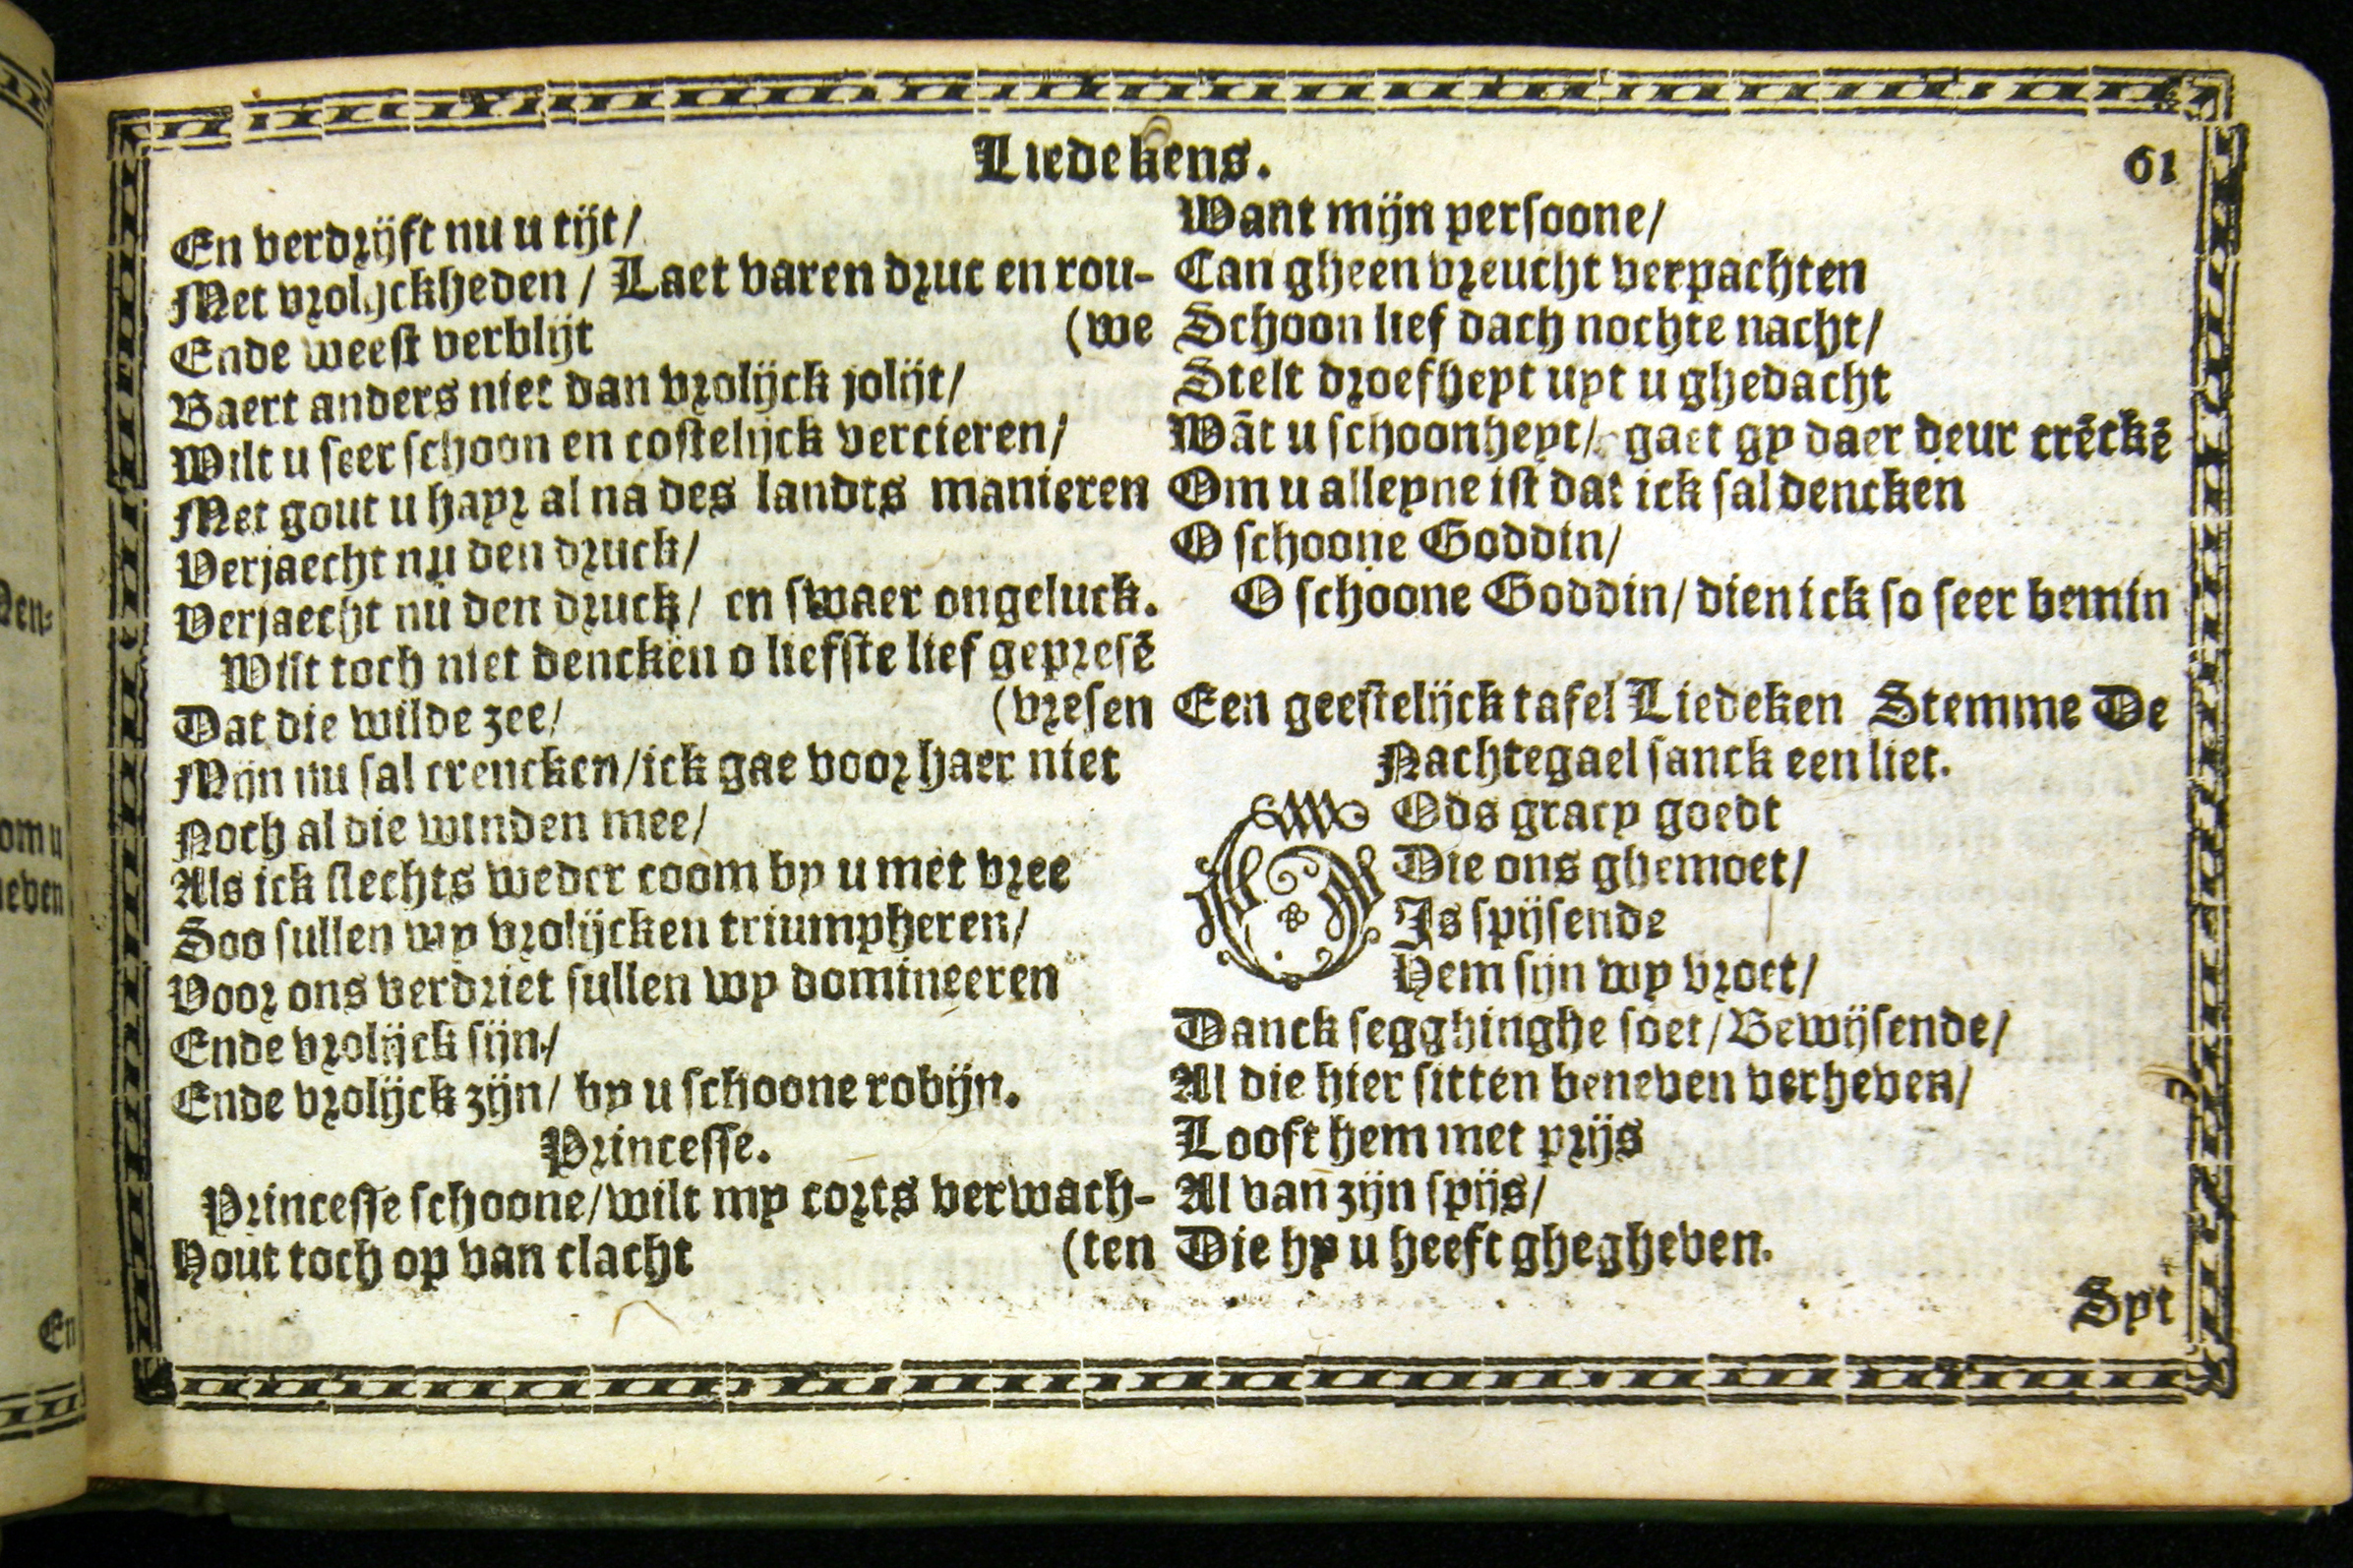 Liedekens.
61
En verdrijft nu u tijt/
Met vrolijckheden / Laet varen druc en rou-
Ende weest verblijt (we
Baert anders niet dan vrolijck jolijt/
Wilt u seer schoon en costelijck vercieren/
Met gout u hayr al na des landts manieren
Verjaecht nu den druck/
Verjaecht nu den druck/ en swaer ongeluck.
Wilt toch niet dencken o liefste lief gepresē
Dat die wilde zee/ (vresen
Mijn nu sal crencken/ick gae voor haer niet
Noch al die winden mee/
Als ick slechts weder coom by u met vree
Soo sullen wy vrolijcken triumpheren/
Voor ons verdriet sullen wy domineeren
Ende vrolijck sijn/
Ende vrolijck zijn/ by u schoone robijn.
Princesse.
Princesse schoone/wilt my corts verwach-
Hout toch op van clacht (ten
Want mijn persoone/
Can gheen vreucht verpachten
Schoon lief dach nochte nacht/
Stelt droefheyt uyt u ghedacht
Wāt u schoonheyt/ gaet gy daer deur crēckē
Om u alleyne ist dat ick sal dencken
O schoone Goddin/
O schoone Goddin/ dien ick so seer bemin
Een geestelijck tafel Liedeken Stemme De
Nachtegael sanck een liet.
GOds gracy goedt
Die ons ghemoet/
Is spijsende
Hem sijn wy vroet/
Danck segghinghe soet/Bewijsende/
Al die hier sitten beneven verheven/
Looft hem met prijs
Al van zijn spijs/
Die hy u heeft ghegheven.
Spi
den-
om u
neven
En